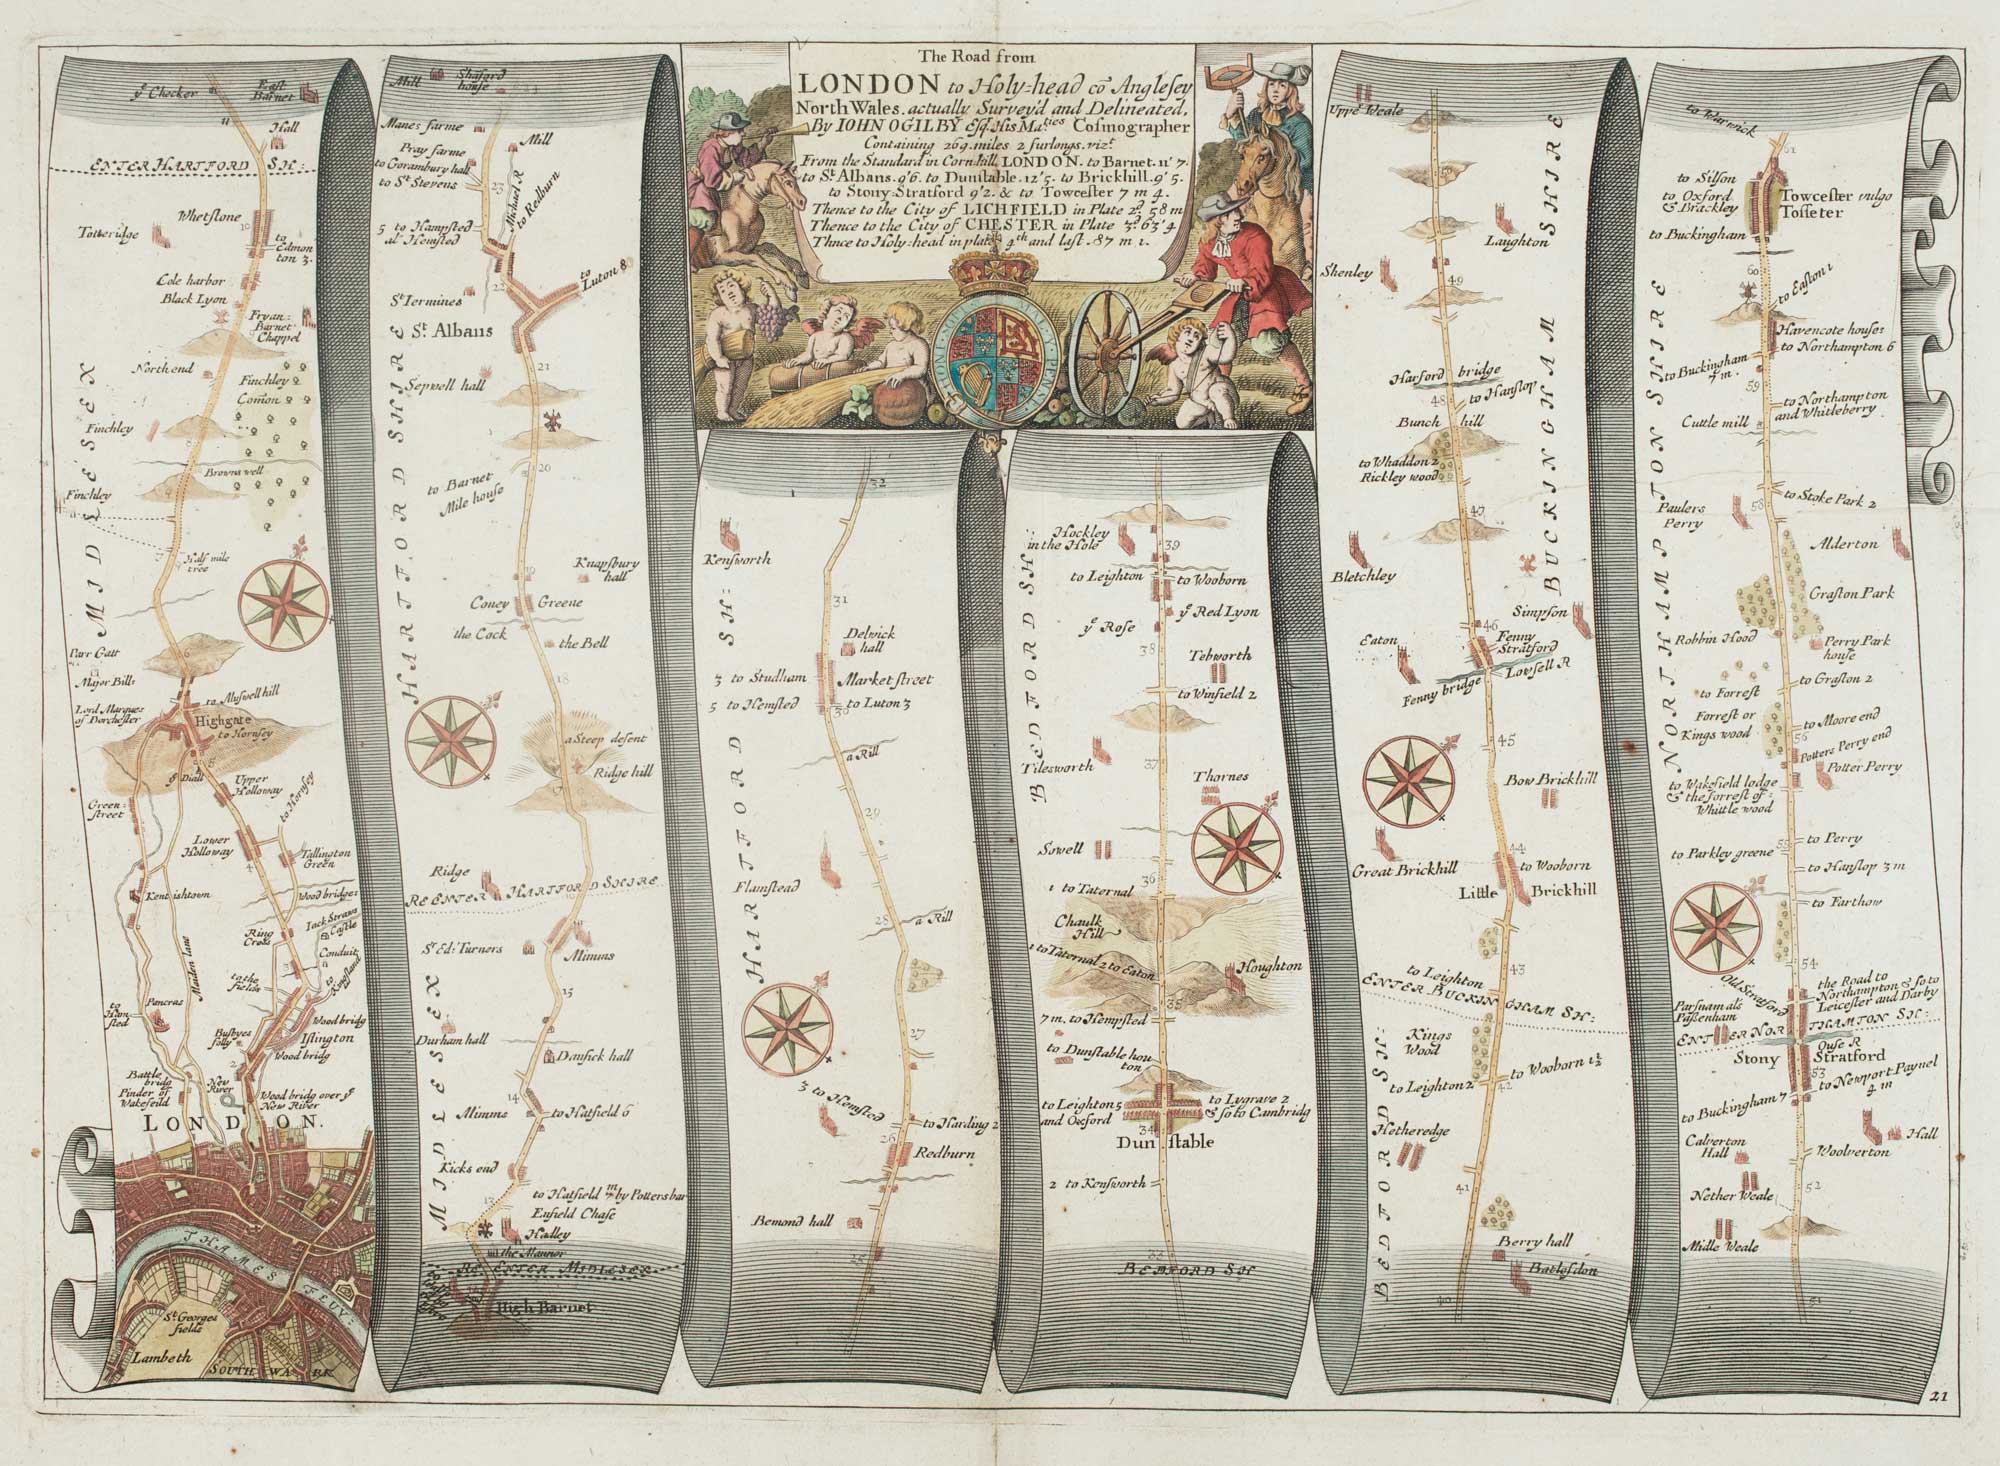 The Road from
LONDON to Holy=head cō Anglesey
North Wales. actually Survey'd and Delineated,
By IOHN OGILBY Esqr. His Ma:ties Cosmographer
Containing 269. miles 2 furlongs. vizt.
From the Standard in Cornhill LONDON. to Barnet. 11' 7.
to St. Albans. 9'6. to Dunstable. 12'5. to Brickhill. 9'5.
to Stony=Stratford 9'2. & to Towcester 7 m 4.
Thence to the City of LICHFIELD in Plate 2d. 58 m
Thence to the City of CHESTER in Plate 3d. 63'4
Thnce to Holy=head in plate 4th and last. 87 m 1.
ye Checker
East Barnet
11
Hall
ENTER HARTFORD SH:
Whetstone
10
Totteridge
to Edmonton 3.
Cole harbor
Black Lyon
Fryan=Barnet Chappel
North end
Finchley Comon
Finchley
8
Browns well
Finchley
MIDLESEX
7
Half mile tree
6
Parr Gatt
Major Bills
to Muswell hill
Lord Marques of Dorchester
Highgate
to Hornsey
5
ye Diall
Upper Holloway
to Hornsey
Green=street
Lower Holloway
4
Tallington Green
Kentishtown
Wood bridge
Jack Straws Castle
Ring Cross
Conduit
3
Maiden lane
to the fields
to Kingsland
to Hamsted
Pancras
Wood bridg
Busbyes folly
Islington
2
Wood bridg
Battle bridg
Pinder of Wakefeild
New River
Wood bridg over ye New River
LONDON.
THAMES FLUV:
St. Georges fields
Lambeth
SOUTHWARK
Mill
Shaford house
Manes farme
Mill
Pray farme
to Gorambury hall
to St Stevens
23
Michael R
to Redburn
5 to Hampsted
als Hemsted
22
to Luton 8
St Iermines
St. Albans
21
Sepwell hall
20
to Barnet
Mile house
HARTFORD SHIRE
19
Knapsbury hall
Coney Greene
the Cock
the Bell
18
a Steep desent
Ridge hill
17
Ridge
RE ENTER HARTFORD SHIRE
16
St. Ed: Turners
Mimms
15
Durham hall
Dansick hall
MIDLESEX
14
Mimms
to Hatfield 6
Kicks end
13
to Hatfield 7m by Pottersbar
Enfield Chase
Hadley
the Mannor
RE ENTER MIDLESEX
High Barnet
32
Kensworth
HARTFORD SH:
31
Delwick hall
3 to Studham
Market street
5 to Hemsted
30
to Luton 3
a Rill
29
Flamstead
28
a Rill
27
3 to Hemsted
to Harding 2
26
Redburn
Bemond hall
25
Hockley in the Hole
39
to Leighton
to Wooborn
ye Red Lyon
ye Rose
38
BEDFORD SH:
Tebworth
to Winfield 2
Tilesworth
37
Thornes
Sowell
36
1 to Taternal
Chaulk Hill
1 to Taternal 2 to Eaton
Houghton
35
7 m. to Hempsted
to Dunstable houton
to Leighton 5
and Oxford
to Lygrave 2
& so to Cambridg
34
Dunstable
2 to Kensworth
33
BEDFORD SH
Uppr Weale
50
Laughton
Shenley
49
BUCKINGHAM SHIRE
Harford bridge
48
to Hanslop
Bunch hill
to Whaddon 2
Rickley wood
47
Bletchley
Simpson
46
Eaton
Fenny Stratford
Lowsell R
Fenny bridge
45
Bow Brickhill
44
to Wooborn
Great Brickhill
Little Brickhill
43
to Leighton
ENTER BUCKINGHAM SH:
Kings Wood
to Wooborn 1½
to Leighton 2
42
BEDFORD SH:
Hetheredge
41
Berry hall
Batlesdon
40
to Warwick
61
to Silson
to Oxford
& Brackley
Towcester vulgo
Tosseter
to Buckingham
60
to Easton 1
Havencote house:
to Northampton 6
to Buckingham 7 m.
59
to Northampton
and Whitleberry
Cuttle mill
NORTHAMPTON SHIRE
to Stoke Park 2
58
Paulers Perry
Alderton
Grafton Park
Robbin Hood
Perry Park house
to Grafton 2
to Forrest
Forrest or Kings wood
to Moore end
56
Potters Perry end
Potter Perry
to Wakefield lodge
& the forrest of
Whittle wood
to Perry
55
to Parkley greene
to Hanslop 3 m
to Farthow
54
Old Stratford
the Road to
Northampton & so to
Leicester and Darby
Parsnam als
Passenham
ENTER NORTHAMTON SH:
Ouse R
Stony Stratford
53
to Newport Paynel
4 m
to Buckingham 7
Calverton Hall
Hall
Woolverton
Nether Weale
52
Midle Weale
51
21